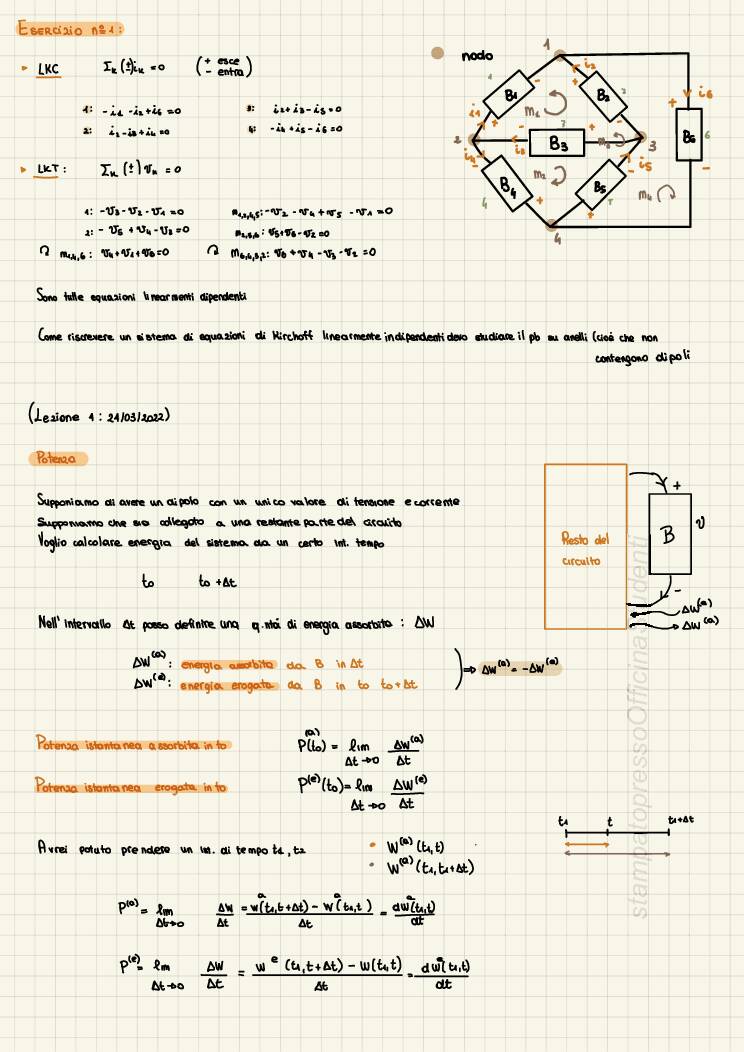 ESERCIZIO n°1:
LKC Σk(±)ik=0 (+ esce - entra)
1: -i1 -i2+i6=0 3: i2+i3-i5=0
2: i1-i3+i4=0 4: -i4+i5-i6=0
LKT: Σk(±)vk=0
1: -v3-v2-v1=0
2: -v5+v4-v3=0 v5+v6-v2=0
v4+v1+v6=0 v6+v4-v3-v2=0
Sono tutte equazioni linearmenti dipendenti
Come riscrevere un sistema di equazioni di Kirchoff linearmente indipendenti devo studiare il pb su anelli (cioè che non
contengono dipoli
nodo
1
i2
i1
B1
B2
m1
i6
2
i3
B3
m3
3
B6
i4
m2
i5
B4
B5
m4
4
(Lezione 1: 24/03/2022)
Potenza
Supponiamo di avere un dipolo con un unico valore di tensione e corrente
Supponiamo che sia collegato a una restante parte del circuito
Voglio calcolare energia del sistema da un certo int. tempo
t0 t0+Δt
Nell'intervallo Δt posso definire una q.ntà di energia assorbita: ΔW
ΔW(a): energia assorbita da B in Δt
ΔW(e): energia erogata da B in t0 t0+Δt
⇒ ΔW(a)=-ΔW(e)
Resto del
circuito
+
B
v
-
ΔW(e)
ΔW(a)
Potenza istantanea assorbita in t0 P(a)(t0)= lim Δt→0 ΔW(a)/Δt
Potenza istantanea erogata in t0 P(e)(t0)= lim Δt→0 ΔW(e)/Δt
Avrei potuto prendere un int. di tempo t1,t2
• W(a)(t1,t)
• W(a)(t1,t1+Δt)
t1 t t1+Δt
P(a)= lim Δt→0 ΔW/Δt = Wa(t1,t+Δt)-Wa(t1,t)/Δt = dWa(t1,t)/dt
P(e)= lim Δt→0 ΔW/Δt = We(t1,t+Δt)-W(t1,t)/Δt = dW(t1,t)/dt
stampatopressoOfficinaStudenti